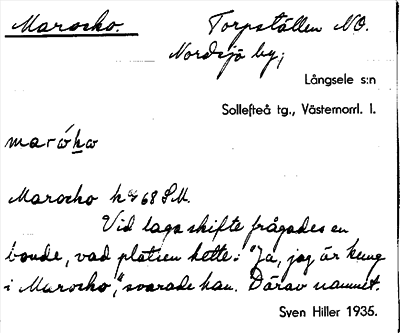 Marocko. Torpställen NO.
Nordsjö by;
Långsele s:n
Sollefteå tg., Västernorrl. l.
marókω
Marocko 68 S.M.
Vid laga skifte frågades en
bonde, vad platsen hette: "Ja, jag är kung
i Marocko", svarade han. Därav namnet.
Sven Hiller 1935.